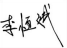 李恒斌